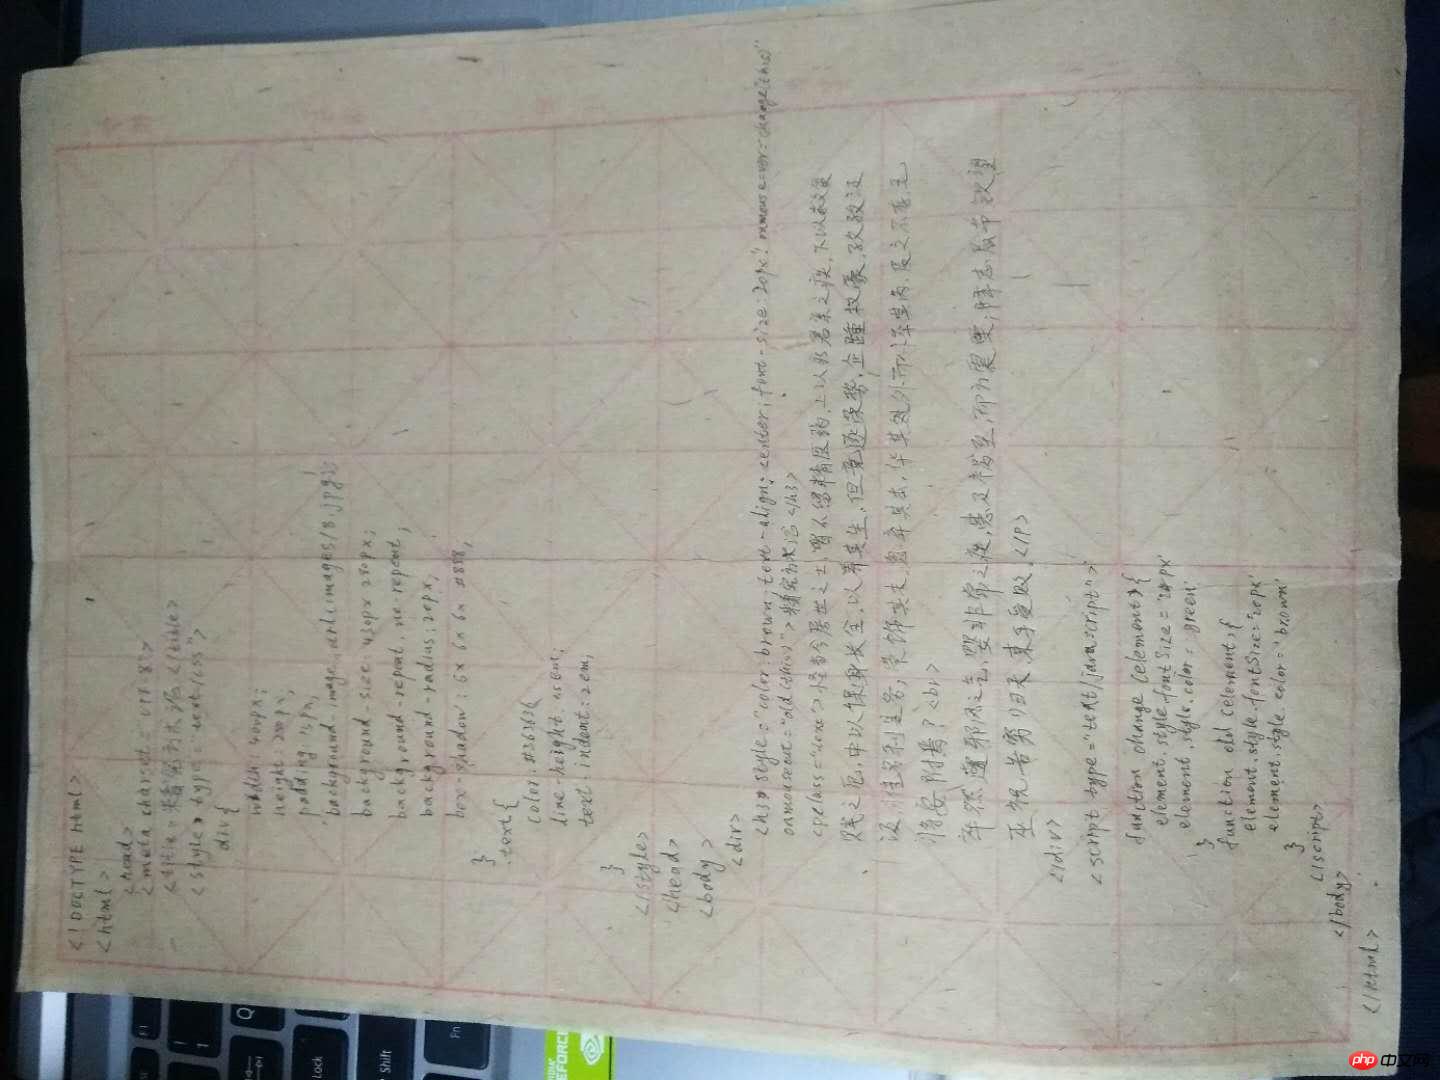 <!DOCTYPE html>
<html>
<head>
<meta charset="UTF-8">
<title> </title>
<style type="text/css">
div{
width:400px;
height:280px;
padding:15px;
background-image:url(images/8.jpg);
background-size:430px 280px;
background-repeat:no-repeat;
background-radius:20px;
box-shadow:6x 6x 6x #888;
}
.text{
color:#363636
line-height:
text:indent:2em;
}
</style>
<head>
<body>
<div>
<h3 style="color:brown;text-align:center;font-size:20px' onmouseover=change(this)"
onmouseout="old(this)"> </h3>
<pclass="text">怪当今居世之士,曾不留 精 医药,上以 君亲之疾,下以救贫
贱之厄,中以保身长全,以养其生,但竞逐荣势,企踵权豪,孜孜汲
汲, 名利是务,崇饰其末, 弃其本,华其外而悴其内,皮之不存,毛
将安附焉?<br>
卒然遭邪风之气,婴非常之疾,患及祸至,而方震栗;降志屈节,钦望
巫祝,告穷归天,束手受败.</p>
</div>
<script type="text/javascript">'
function change(element){
element.style.fontSize=' px'
element.style.color='green'
}
function old(element){
element.style.fontSize='20px'
element.style.color='brown'
}
</script>
</body>
</html>
FORCE
Q
Shift
Fn
F1
php 中文网